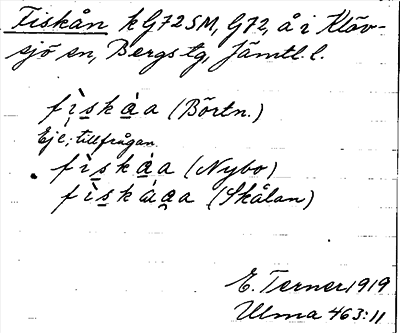 Fiskån k G72SM, G72, å i Klöv-
sjö sn, Bergs tg, Jämtl. l.
fìskàa (Börtn.)
Ej c; tillfrågan.
. fìskàa (Nybo)
fìskàa (Skålan)
E. Terner 1919
Ulma 463:11